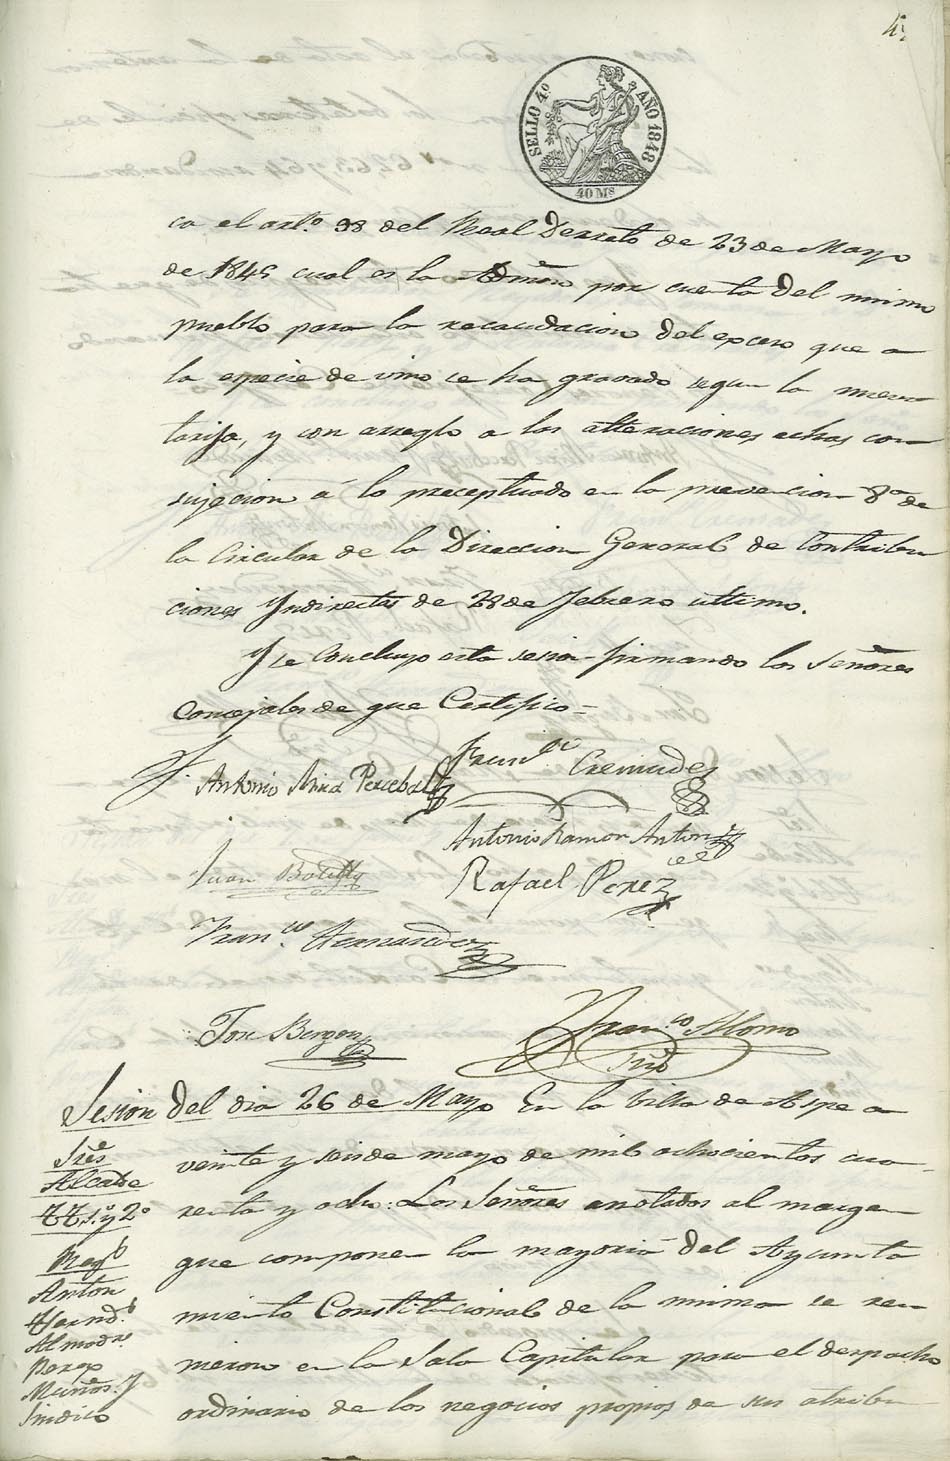 SELLO 4º AÑO 1848
40 Ms
ca el artº 98 del Real Decreto de 23 de Mayo
de 1845 cual es la Admon por cuenta del mismo
pueblo para la recaudacion del exceso que a
la especie de vino se ha gravado segun la nueva
tarifa, y con arreglo a las alteraciones echas con
sujecion á lo preceptuado en la prevencion 8ª de
la Circular de la Direccion General de Contribu
ciones Yndirectas de 28 de Febrero ultimo.
Y se Concluyo esta sesion firmando los Señores
Concejales de que Certifico=
Franco Cremades
Antonio Mira Perceval
Antonio Ramon Anton
Juan Botella
Rafael Perez
Franco Hernandez
Jose Berzon
Franco Alonso
Srio
Sesion del dia 26 de Mayo En la Villa de Aspe a
Sres veinte y seis de mayo de mil ochocientos cua-
Alcalde
TT. 1º y 2º renta y ocho: Los Señores anotados al margen
que componen la mayoria del Ayunta
Anton
Hernds miento Constitucional de la misma se reu
Almodre
nieron en la Sala Capitular para el despacho
Muños. Y
Sindico ordinario de los negocios propios de sus atribu